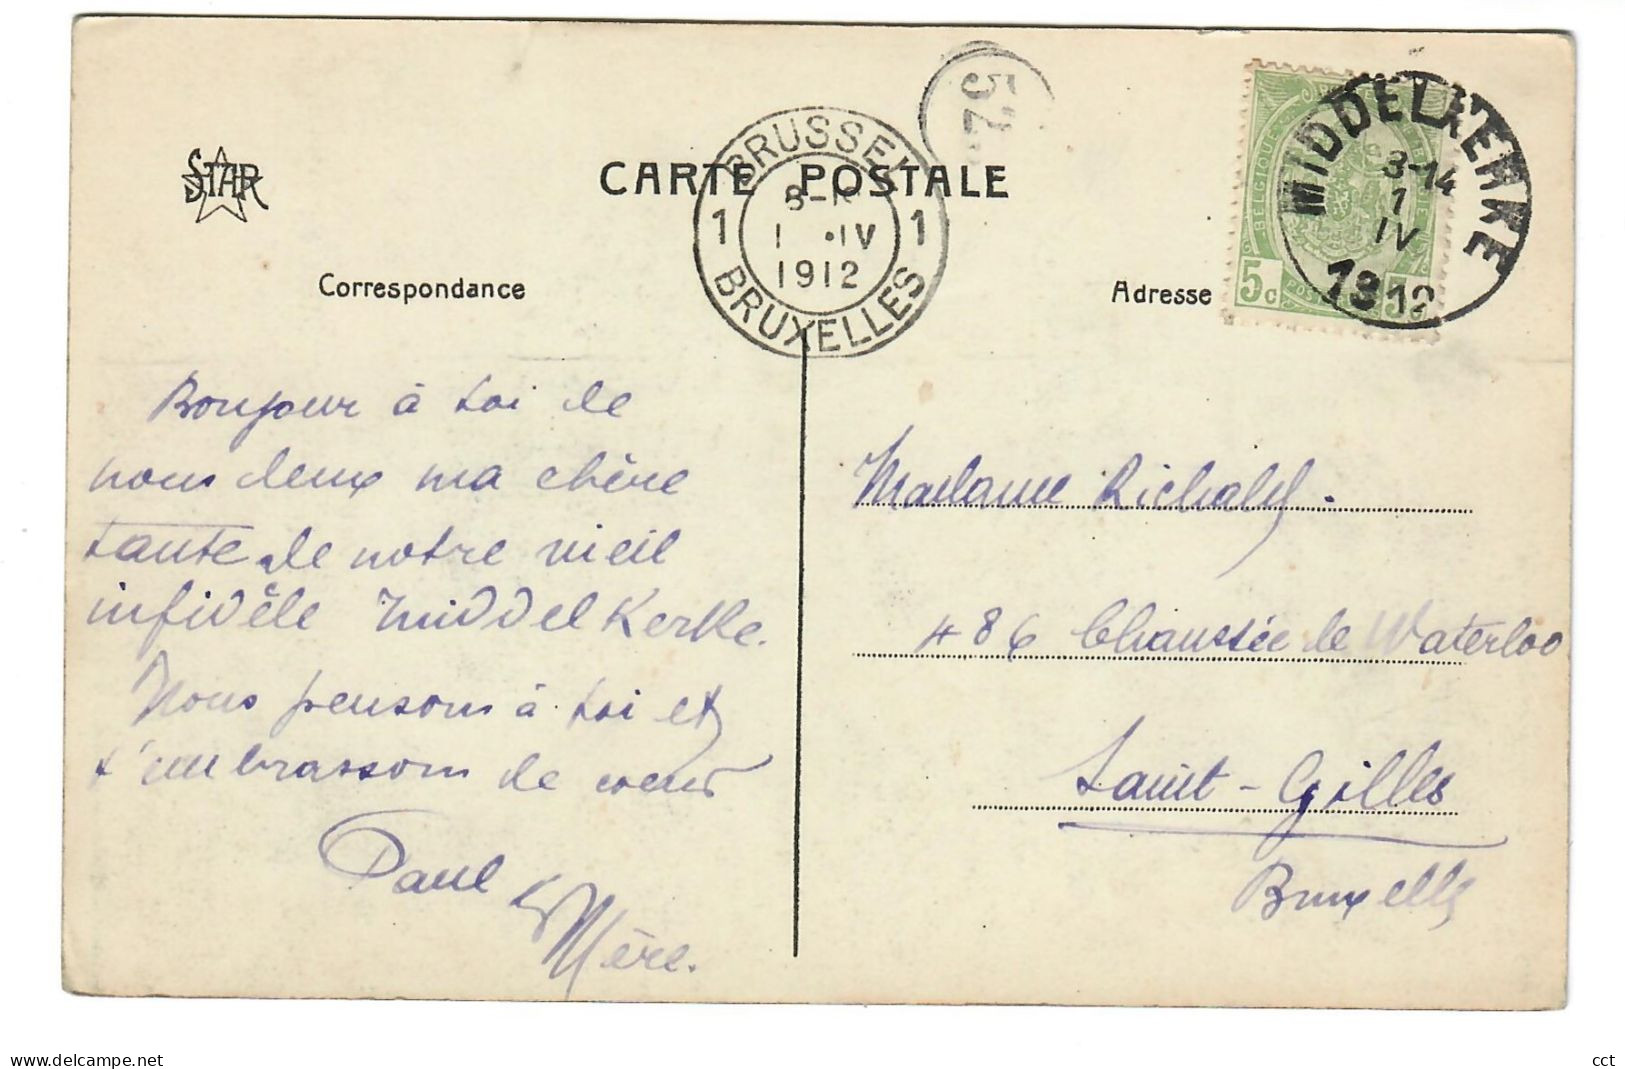 STAR
CARTE POSTALE
BRUSSEL
1 1
I .IV
1912
BRUXELLES
MIDDELKERKE
1
IV
1912
BELGIQUE
5c
Correspondance
Adresse
Bonjour à toi de
nous deux ma chère
tante de notre vieil
infidèle Middelkerke.
Nous pensons à toi et
t'embrassons de coeur
Paul &
Mère.
Madame Richald.
486 Chaussée de Waterloo
Saint-Gilles
Bruxelles
www.delcampe.net
cct